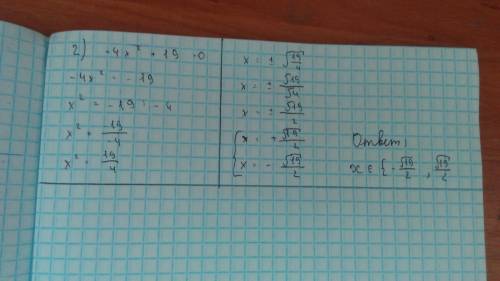 2) -4x² + 19 = 0
-4x² = -19
x² = -19 : -4
x² = -19/-4
x² = 19/4
x = ± √19/4
x = ± √19/√4
x = ± √19/2
{ x = + √19/2
x = - √19/2
Ответ:
x ∈ { - √19/2 , √19/2